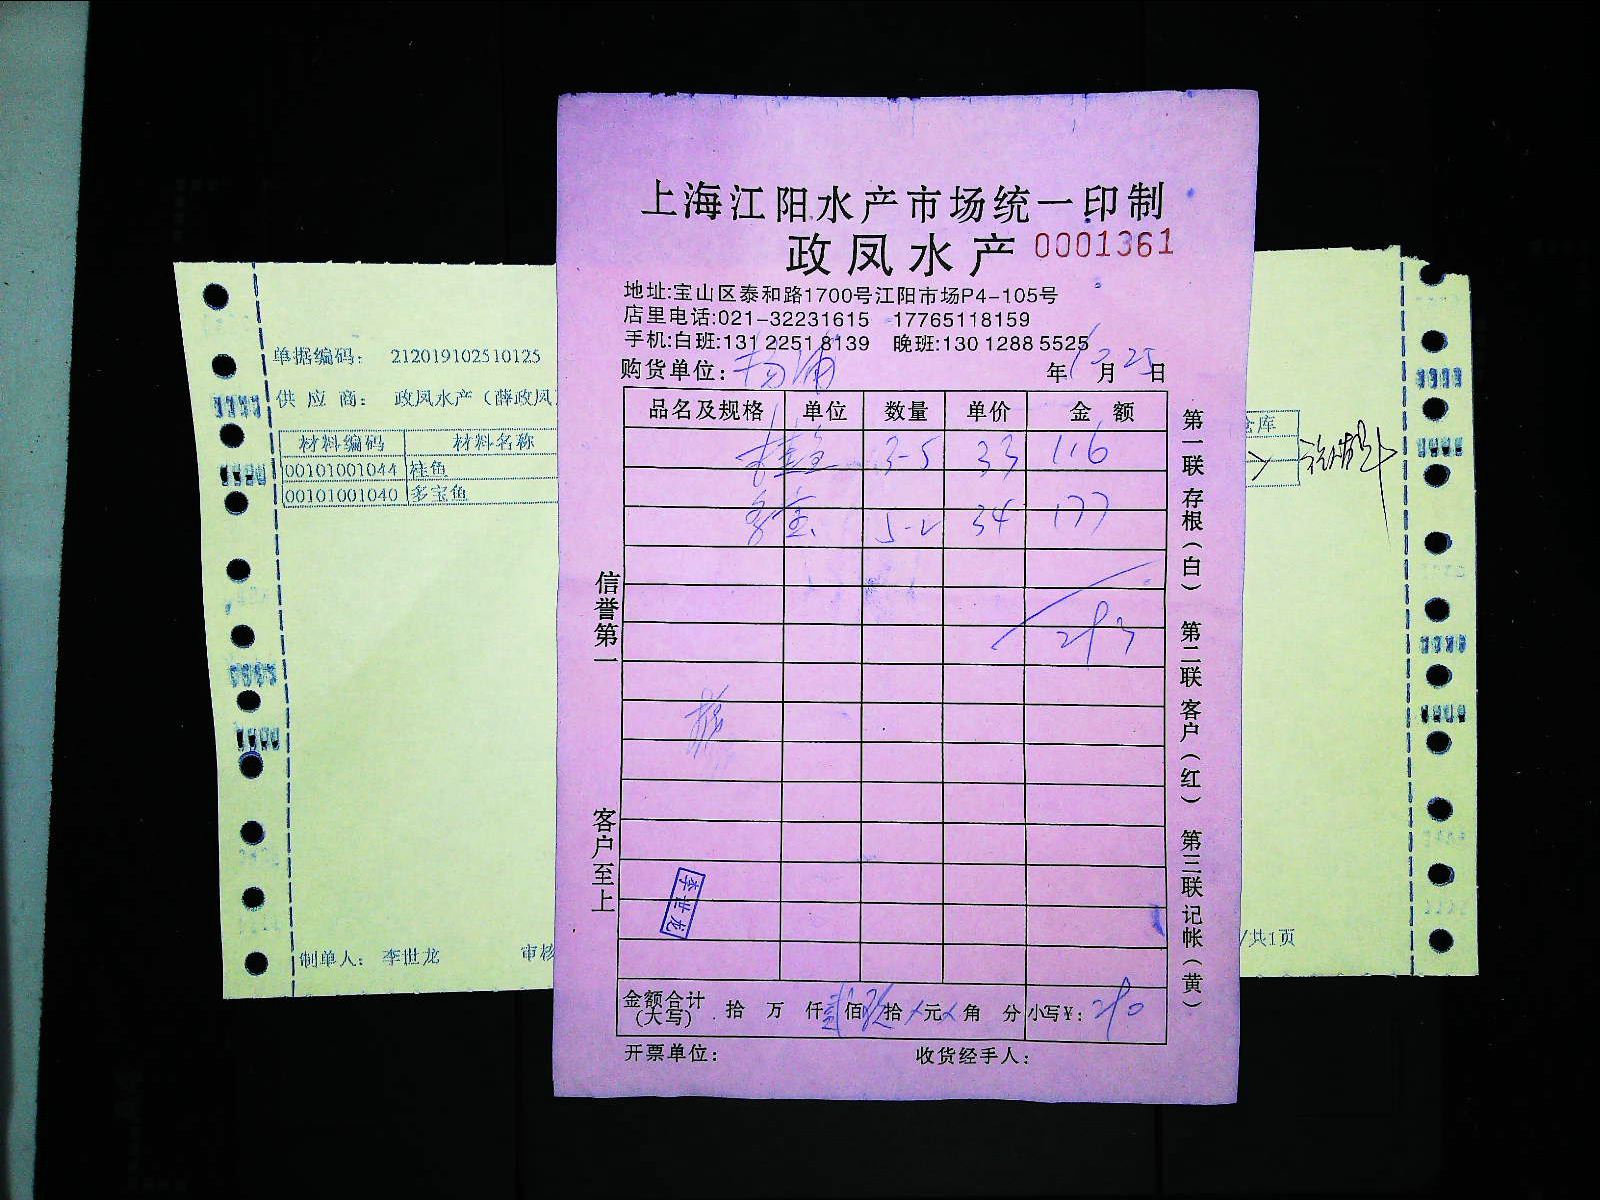 上海江阳水产市场统一印制
政凤水产 0001361
地址:宝山区泰和路1700号江阳市场P4-105号
店里电话:021-32231615 17765118159
手机:白班:131 2251 8139 晚班:130 1288 5525
购货单位: 杨浦 年 月 25 日
品名及规格 单位 数量 单价 金额
桂鱼 3-5 33 116
多宝 5-2 34 177
293
李世龙
金额合计(大写) 拾 万 仟 贰 佰 玖 拾 元 角 分 小写¥: 290
开票单位: 收货经手人:
信誉第一 客户至上
第一联存根(白) 第二联客户(红) 第三联记帐(黄)
单据编码: 212019102510125
供应商: 政凤水产(薛政凤)
材料编码 材料名称
00101001044 桂鱼
00101001040 多宝鱼
制单人: 李世龙 审核
仓库
/共1页